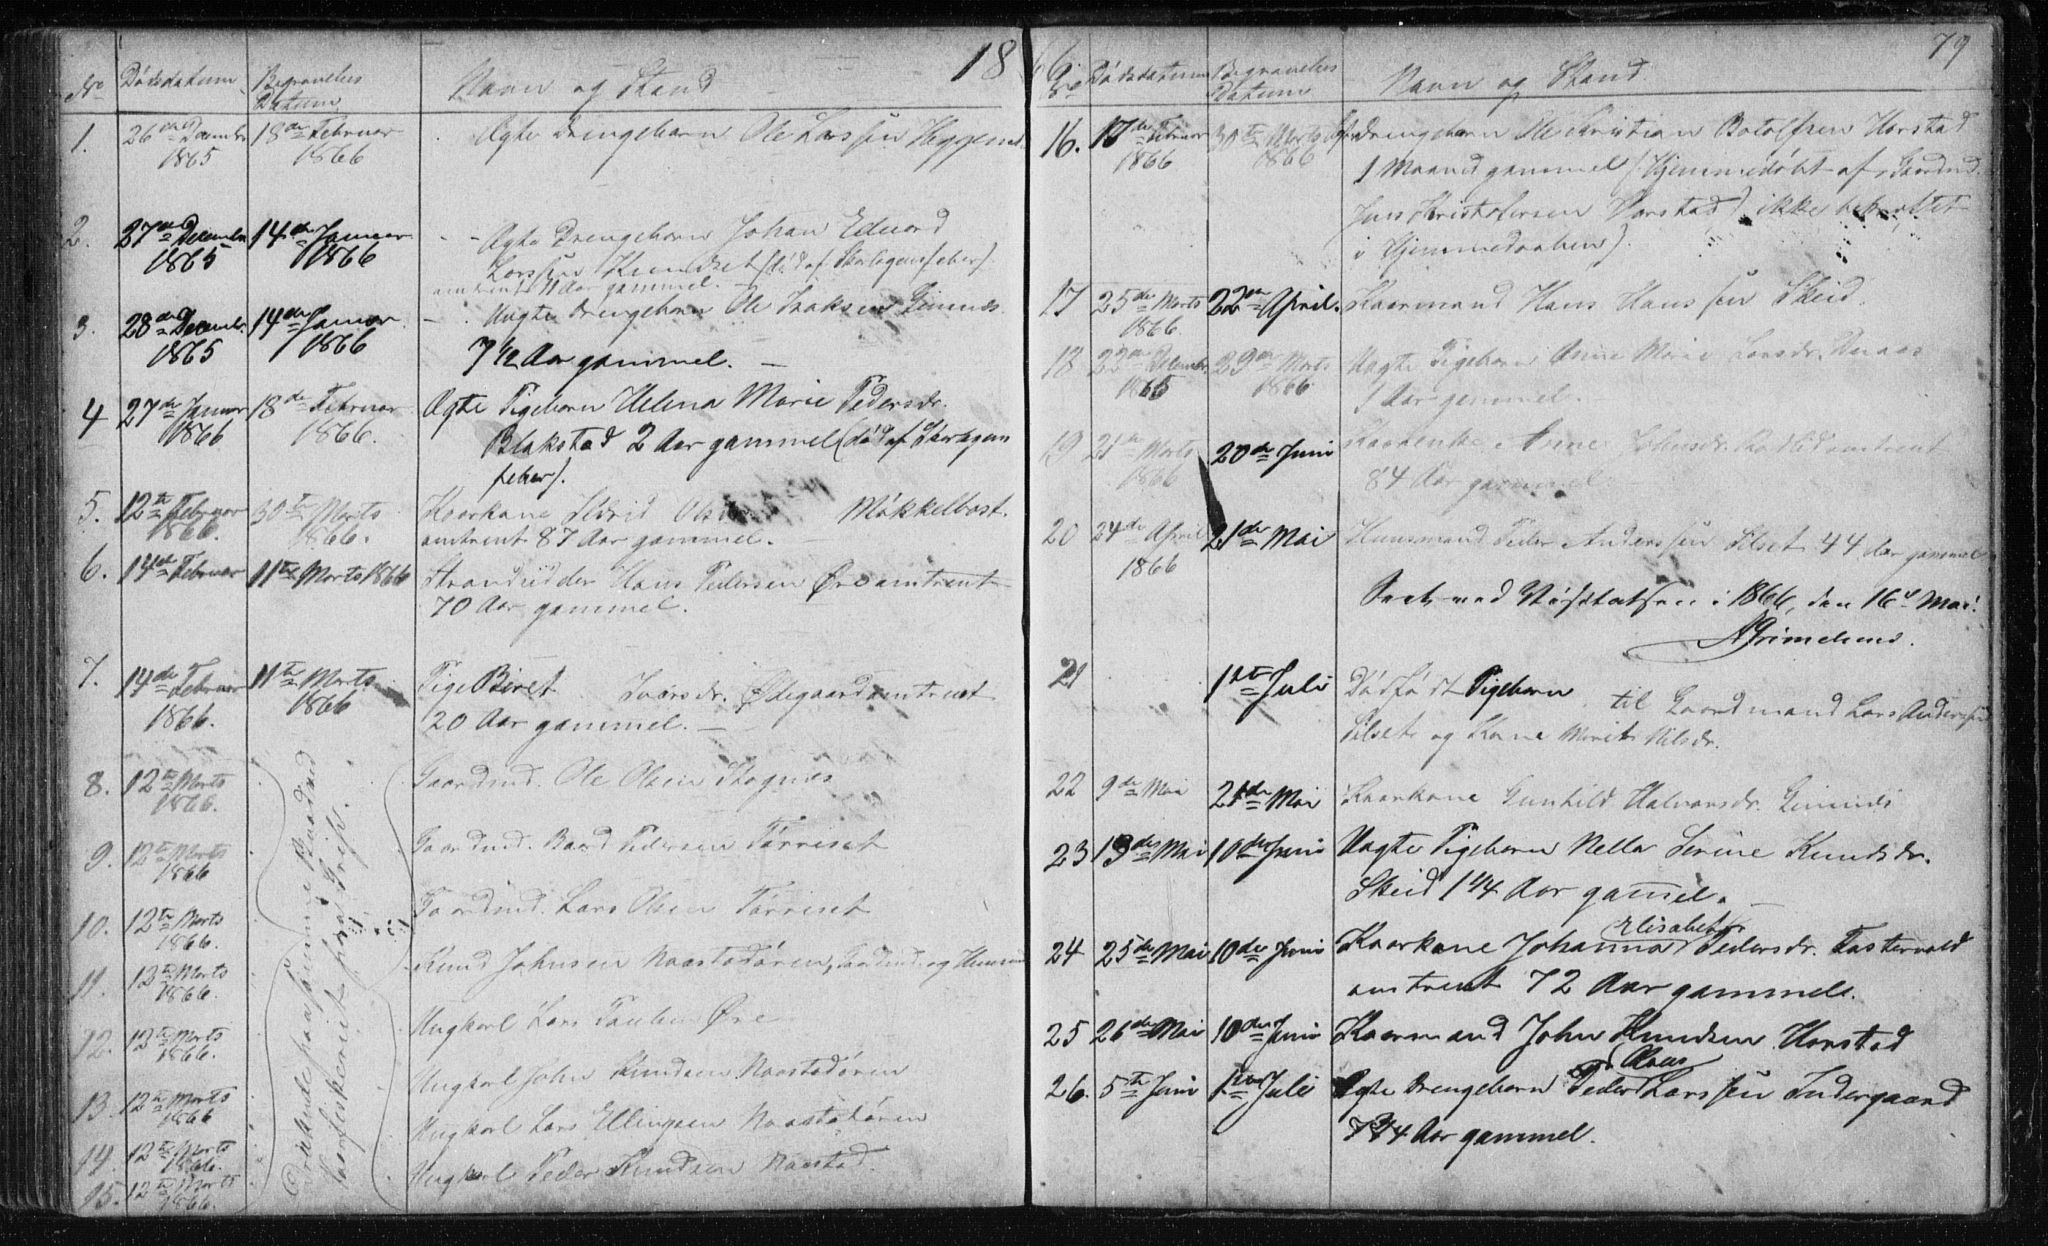 18
No Dødsdatum Begravelses Datum Navn og Stand
1. 26de Decembr 1865 18de Februar 1866 Ægte Drengebarn Ole Larssen Heggem
2. 27de December 1865 14de Januar 1866 Ægte Drengebarn Johan Eduard
Larssen (død af Skarlagensfeber)
omtrent 11 Aar gammel.
3. 28de Decembr. 1865 14de Januar 1866 Uægte Drengebarn Ole Isaksen Gimnes
7 1/2 Aar gammel. —
4 27de Januar 1866 18de Februar 1866. Ægte Pigebarn Helena Marie Pedersdr.
Blakstad 2 Aar gammel (død af Skarlagens
feber).
5. 12te Februar 1866. 30te Marts 1866. Kaarkone Ildrid Olsdr Møkkelbost.
omtrent 87 Aar gammel. —
6. 14de Februar 11te Marts 1866 Strandsidder Hans Pedersen Øre omtrent
70 Aar gammel.
7. 14de Februar 1866. 11te Marts 1866 Pige Beret Iversdr. Ødegaard omtrent
20 Aar gammel. —
8. 12te Marts 1866. Gaardmd. Ole Olsen Stognes
9. 12te Marts 1866 Gaardmd. Baard Pedersen Torriset
10. 12te Marts 1866. Gaardmd. Lars Olsen Torriset
11. 12te Marts 1866. Knud Johnsen Naastadøren,
12. 12te Marts 1866. Ungkarl Lars Paulsen Øre
13. 12te Marts 1866 Ungkarl John Knudsen Naastadøren
14. 12te Marts 1866. Ungkarl Lars Ellingsen Naastadøren
15. 12te Marts 1866. Ungkarl Peder Knudsen Naastad.
Druknede paa samme Baadved
Vaarfiskeriet fra Grip.
66
79
No Dødsdatum Begravelses Datum Navn og Stand
16. 17de Februar 1866 30te Marts 1866 Drengebarn Ole Kristian Botolfsen Harstad
1 Maaned gammel (Hjemmedøbt af Gaardmd.
Jens Kristofersen Harstad) ikke bekræftet
i Hjemmedaaben).
17 25de Marts 1866. 22de April. Kaarmand Hans Hanssen Skeid.
18 22de Decembr. 1865 29de Marts 1866 Uægte Pigebarn Anne Marie Larsdr.
1 Aar gammel.
19 21de Marts 1866 20de Juni Kaarenke Anne omtrent
84 Aar gammel.
20 24de April 1866 21de Mai Huusmand Peder Anderssen Silset 44 Aar gammel
Seet ved Visitatsen i 1866, den 16de Mai.
AGrimelund.
21 1ste Juli Dødfødt Pigebarn til Gaardmand Lars Anderssen
Silset og Kone Marit Nilsdr.
22 9de Mai 21de Mai Kaarkone Gunhild Halvorsdr. Gimnes
23 13de Mai 10de Juni Uægte Pigebarn Nella Serine Knudsdr.
Skeid 1 1/4 Aar gamel. —
Elisabeth
24 25de Mai 10de Juni Kaarkone Johanna Pedersdr. Fastervold
omtrent 72 Aar gammel.
25 26de Mai 10de Juni Kaarmand John Knudsen Harstad
26. 5te Juni 1ste Juli Ægte Drengebarn Peder Larssen Indergaard
7 3/4 Aar gammel.